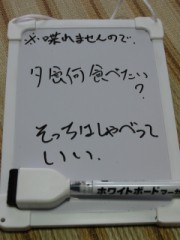 ※喋れませんので、
夕飯何食べたい
?
そっちはしゃべって
いい.
ホワイトボードマーカ